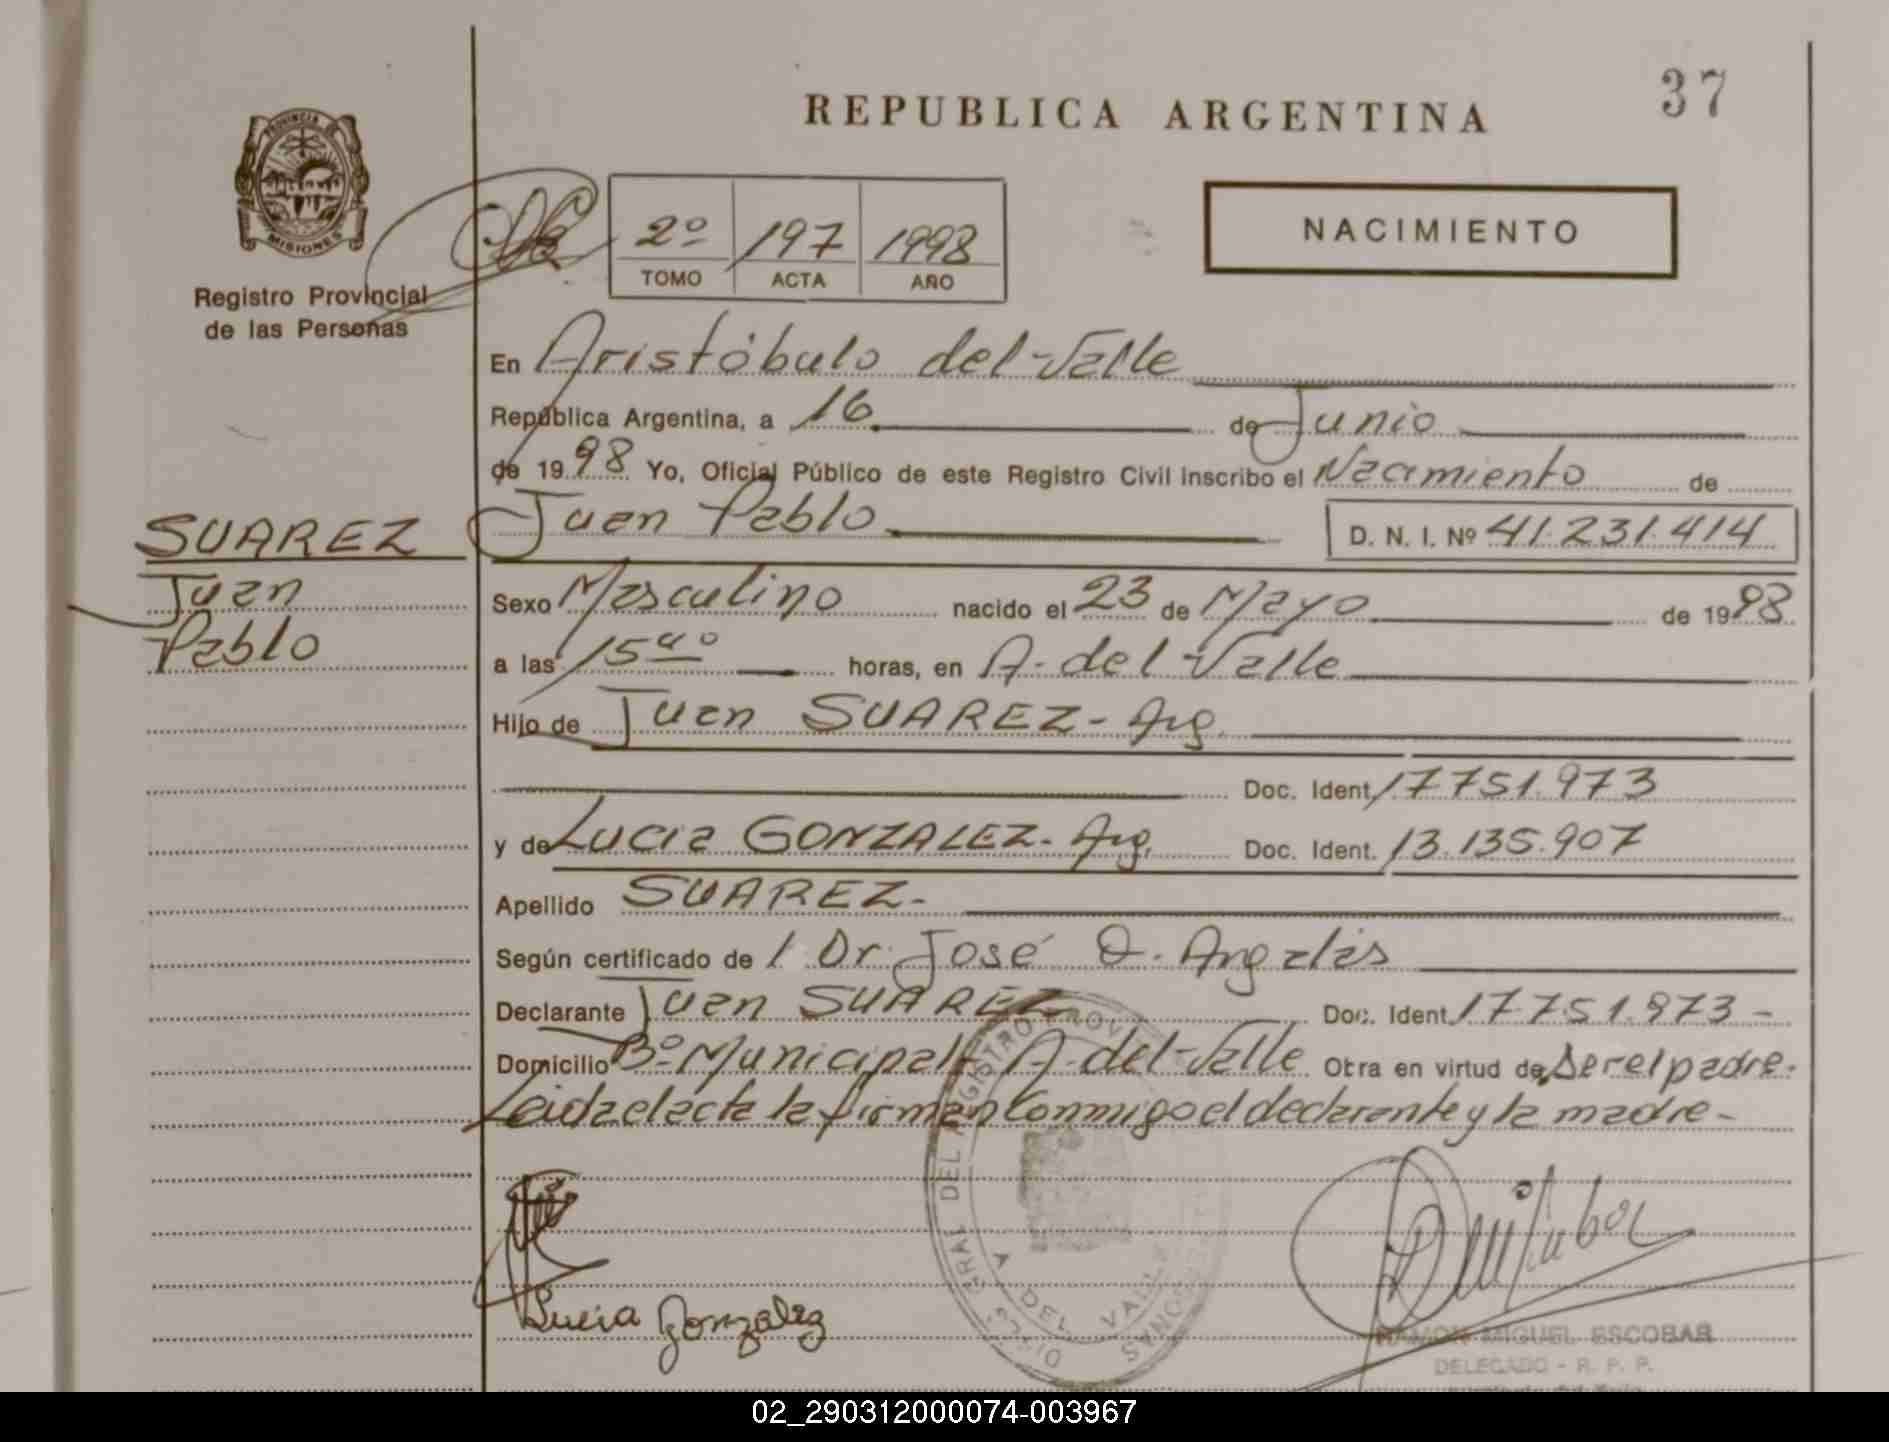 37
REPUBLICA ARGENTINA
PROVINCIA DE
MISIONES
Registro Provincial
de las Personas
NACIMIENTO
2º 197 1998
TOMO ACTA AÑO
En Aristóbulo del Valle
República Argentina, a 16 de Junio
de 1998 Yo, Oficial Público de este Registro Civil inscribo el Nacimiento de
Juan Pablo D. N. I. Nº 41.231.414
SUAREZ
Juan
Pablo
Sexo Masculino nacido el 23 de Mayo de 1998
a las 15 horas, en A. del Valle
Hijo de Juan SUAREZ - Arg.
Doc. Ident. 17.751.973
y de Lucia GONZALEZ - Arg. Doc. Ident. 13.135.907
Apellido SUAREZ.-
Según certificado de / Dr. José
Declarante Juan SUAREZ Doc. Ident. 17.751.973 -
Domicilio Bº Municipal - A. del Valle Obra en virtud de Ser el padre.
Leida el acta la firman conmigo el declarante y la madre -
Lucia Gonzalez
DIREC. GRAL DEL REGISTRO PROV
A. DEL VALLE
RAMON MIGUEL ESCOBAR
DELEGADO - R. P. P.
02_290312000074-003967